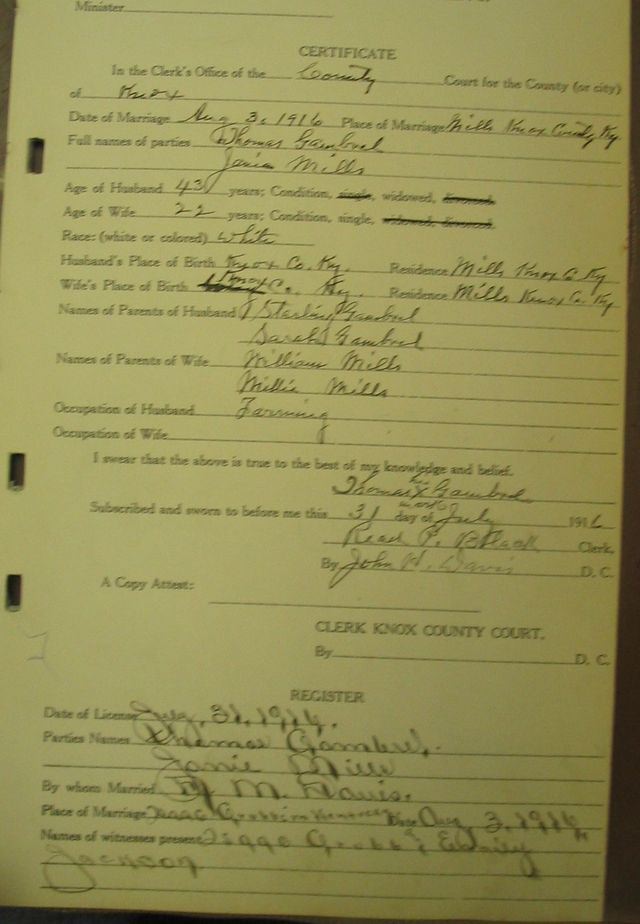 Minister
CERTIFICATE
In the Clerk's Office of the County Court for the County (or city)
of Knox
Date of Marriage Aug 3, 1916 Place of Marriage Mills Knox County Ky.
Full names of parties Thomas Gambrel
Janie Mills
Age of Husband 43 years; Condition, single, widowed, divorced.
Age of Wife 22 years; Condition, single, widowed, divorced.
Race: (white or colored) White
Husband's Place of Birth Knox Co. Ky. Residence Mills Knox Co Ky
Wife's Place of Birth Knox Co. Ky. Residence Mills Knox Co. Ky
Names of Parents of Husband Starling Gambrel
Sarah Gambrel
Names of Parents of Wife William Mills
Millie Mills
Occupation of Husband Farming
Occupation of Wife
I swear that the above is true to the best of my knowledge and belief.
Thomas his x mark Gambrel
Subscribed and sworn to before me this 31 day of July 1916
Read P. Black Clerk.
By John H. Davis D. C.
A Copy Attest:
CLERK KNOX COUNTY COURT.
By D. C.
REGISTER
Date of License July, 31, 1916.
Parties Names Thomas Gambrel.
Janie Mills
By whom Married M. Davis.
Place of Marriage Isaac Date Aug 3, 1916
Names of witnesses present Isaac
Jackson